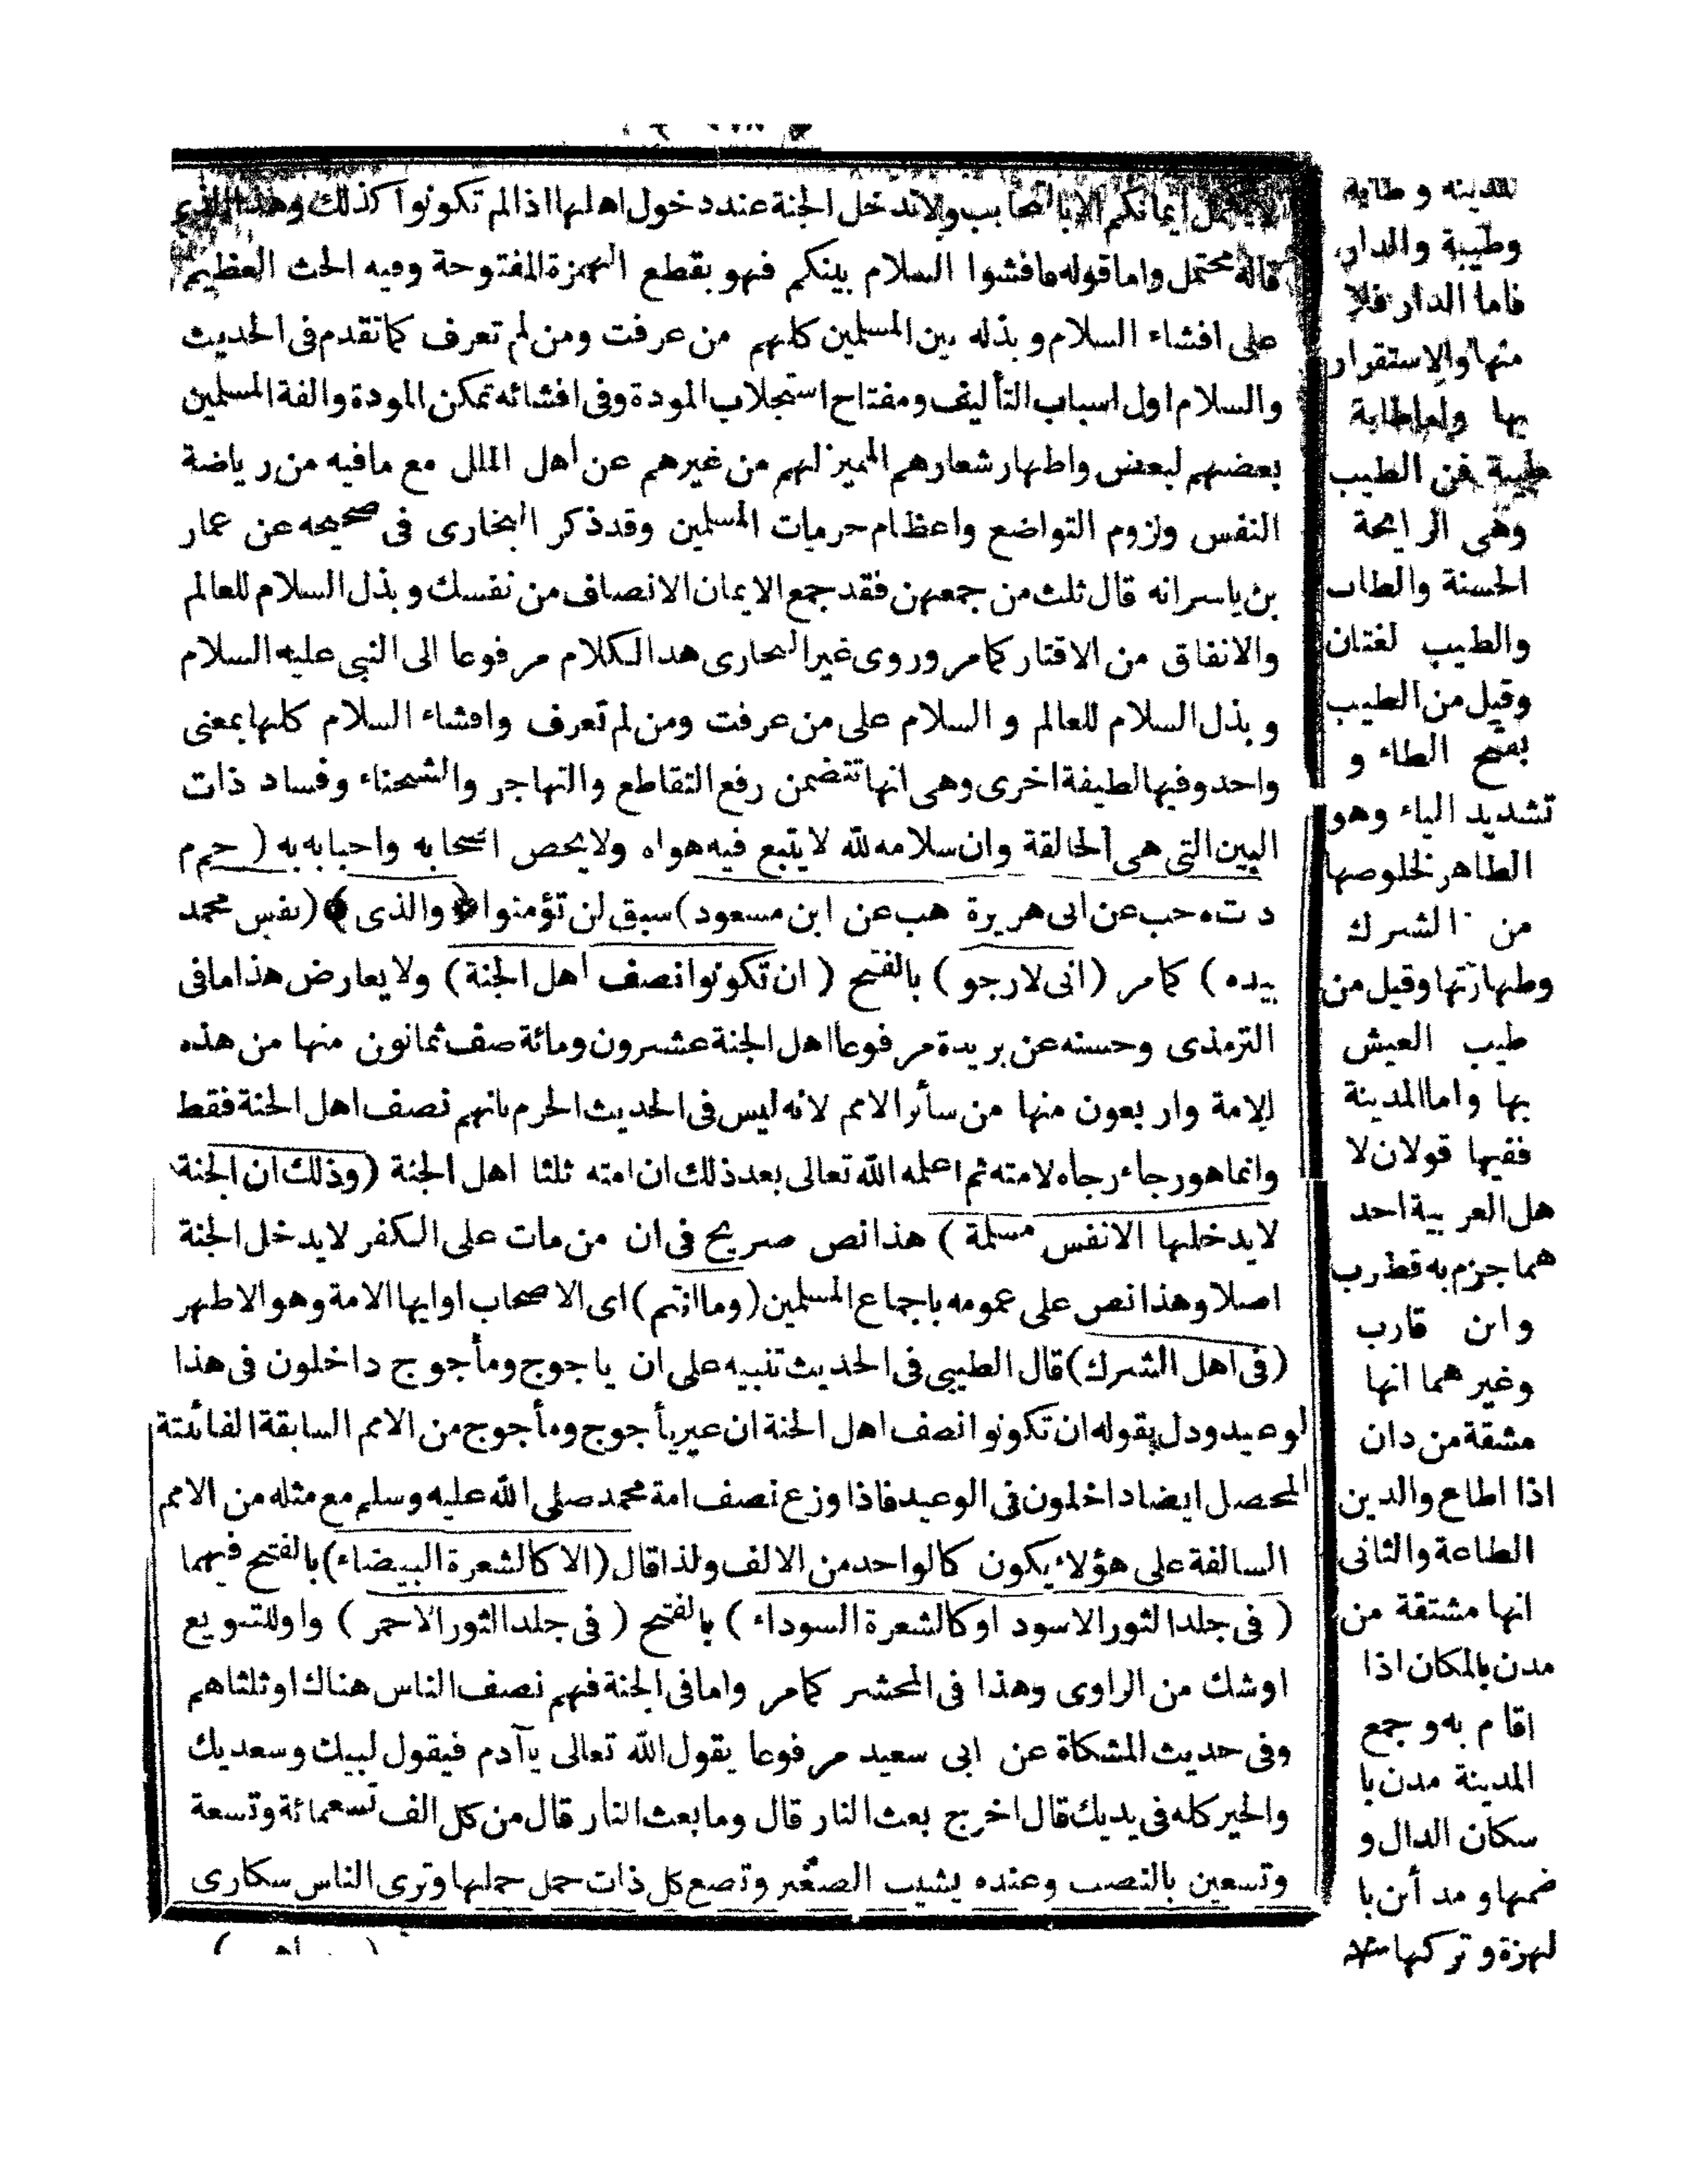 ايمانكم الا بالتحابب ولا تدخل الجنة عند دخول اهلها اذا لم تكونوا كذلك وهذا الذى
قاله محتمل واما قوله فافشوا السلام بينكم فهو بقطع الهمزة المفتوحة وفيه الحث العظيم
على افشاء السلام و بذله بين المسلمين كلهم من عرفت ومن لم تعرف كما تقدم فى الحديث
والسلام اول اسباب التأليف ومفتاح استجلاب المودة وفى افشائه تمكن المودة والفة المسلمين
بعضهم لبعض واظهار شعارهم المميز لهم من غيرهم عن اهل الملل مع مافيه من رياضة
النفس ولزوم التواضع واعظام حرمات المسلمين وقد ذكر البخارى فى صحيحه عن عمار
بن ياسر انه قال ثلث من جمعهن فقد جمع الايمان الانصاف من نفسك و بذل السلام للعالم
والانفاق من الاقتار كما مر وروى غير البخارى هذا الكلام مرفوعا الى النبى عليه السلام
و بذل السلام للعالم و السلام على من عرفت ومن لم تعرف وافشاء السلام كلها بمعنى
واحد وفيها لطيفة اخرى وهى انها تتضمن رفع التقاطع والتهاجر والشحناء وفساد ذات
البين التى هى الحالقة وان سلامه لله لا يتبع فيه هواه ولا يخص اصحابه واحبابه به ( حم م
د ت ه حب عن ابى هريرة هب عن ابن مسعود ) سبق لن تؤمنوا ﴿ والذى ﴾ ( نفس محمد
بيده ) كما مر ( انى لارجو ) بالفتح ( ان تكونوا نصف اهل الجنة ) ولا يعارض هذا مافى
الترمذى وحسنه عن بريدة مرفوعا اهل الجنة عشرون ومائة صف ثمانون منها من هذه
الامة واربعون منها من سائر الامم لانه ليس فى الحديث الجزم بانهم نصف اهل الجنة فقط
وانما هو رجاء رجاه لامته ثم اعلمه الله تعالى بعد ذلك ان امته ثلثا اهل الجنة ( وذلك ان الجنة
لا يدخلها الا نفس مسلمة ) هذا نص صريح فى ان من مات على الكفر لا يدخل الجنة
اصلا وهذا نص على عمومه باجماع المسلمين ( وما انتم ) اى الاصحاب او ايها الامة وهو الاظهر
( فى اهل الشرك ) قال الطيبى فى الحديث تنبيه على ان ياجوج ومأجوج داخلون فى هذا
لوعيد ودل بقوله ان تكونوا نصف اهل الجنة ان غير يأجوج ومأجوج من الامم السابقة الفائتة
المحصل ايضا داخلون فى الوعيد فاذا وزع نصف امة محمد صلى الله عليه وسلم مع مثله من الامم
السالفة على هؤلاء يكون كالواحد من الالف ولذا قال ( الا كالشعرة البيضاء ) بالفتح فيهما
( فى جلد الثور الاسود او كالشعرة السوداء ) بالفتح ( فى جلد الثور الاحمر ) واو للتنويع
او شك من الراوى وهذا فى المحشر كما مر واما فى الجنة فهم نصف الناس هناك او ثلثاهم
وفى حديث المشكاة عن ابى سعيد مرفوعا يقول الله تعالى يا آدم فيقول لبيك وسعديك
والخير كله فى يديك قال اخرج بعث النار قال وما بعث النار قال من كل الف تسعمائة وتسعة
وتسعين بالنصب وعنده يشيب الصغير وتضع كل ذات حمل حملها وترى الناس سكارى
للمدينه و طابه
وطيبة والدار
فاما الدار فلا
منها والاستقرار
بها واما طابة
طيبة فمن الطيب
وهى الرايحة
الحسنة والطاب
والطيب لغتان
وقيل من الطيب
بفتح الطاء و
تشديد الياء وهو
الطاهر لخلوصها
من الشرك
وطهارتها وقيل من
طيب العيش
بها واما المدينة
ففيها قولان لا
هل العربية احد
هما جزم به قطرب
وابن قارب
وغيرهما انها
مشقة من دان
اذا اطاع والدين
الطاعة والثانى
انها مشتقة من
مدن بالمكان اذا
اقام به و جمع
المدينة مدن با
سكان الدال و
ضمها و مدأئن با
لهزة و تركها